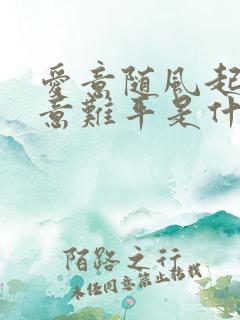 愛意随風起
意難平是什
陌路之行
未经同意禁止转载